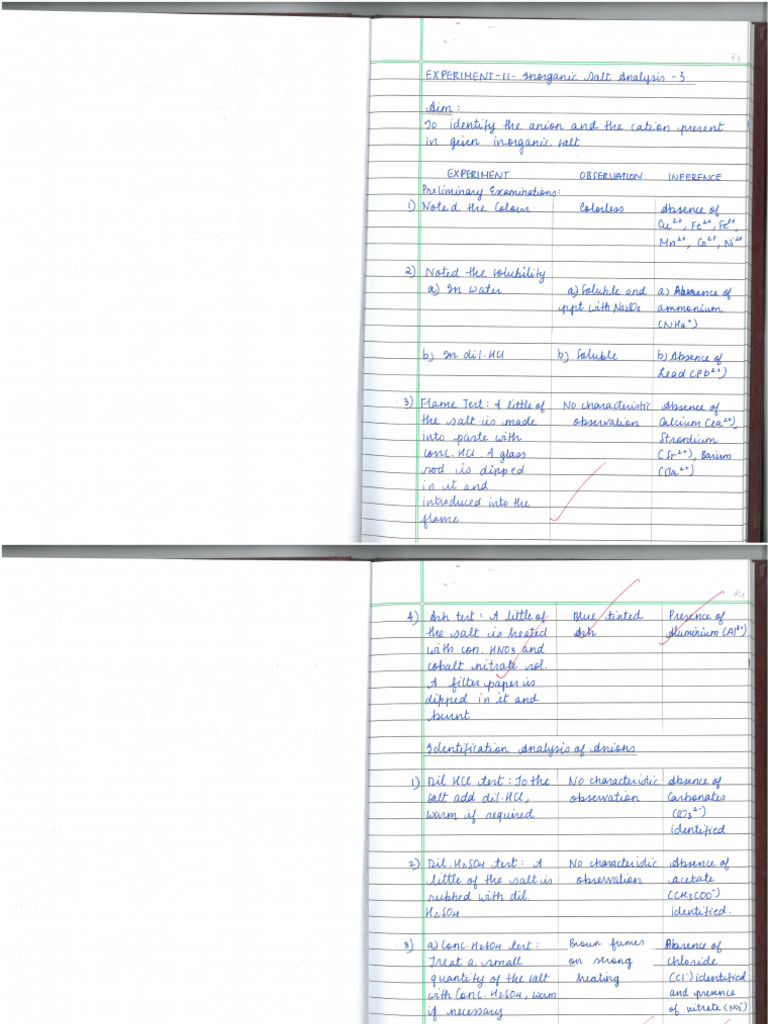 33
EXPERIMENT-11- Inorganic Salt Analysis -3
Aim:
To identify the anion and the cation present
in given inorganic salt
EXPERIMENT OBSERVATION INFERENCE
Preliminary Examinations:
1) Noted the Colour Colorless Absence of
Cu2+, Fe2+, Fe3+,
Mn2+, Co2+, Ni2+
2) Noted the solubility
a) In water a) Soluble and a) Absence of
ppt with Na2CO3 ammonium
(NH4+)
b) In dil. HCl b) Soluble b) Absence of
Lead (Pb2+)
3) Flame Test: A little of No characteristic Absence of
the salt is made observation Calcium (Ca2+),
into paste with Strontium
conc. HCl. A glass (Sr2+), Barium
rod is dipped (Ba2+)
in it and
introduced into the
flame
34
4) Ash test: A little of Blue tinted Presence of
the salt is heated Ash Aluminium (Al3+)
with con. HNO3 and
cobalt nitrate sol.
A filter paper is
dipped in it and
burnt
Identification Analysis of Anions
1) Dil HCl test: To the No characteristic Absence of
salt add dil. HCl, observation Carbonates
warm if required (CO32-)
identified
2) Dil. H2SO4 test: A No characteristic Absence of
little of the salt is observation acetate
rubbed with dil. (CH3COO-)
H2SO4 identified.
3) a) Conc. H2SO4 test: Brown fumes Absence of
Treat a small on strong chloride
quantity of the salt heating (Cl-) identified
with Conc. H2SO4, warm and presence
if necessary of nitrate (NO3-)